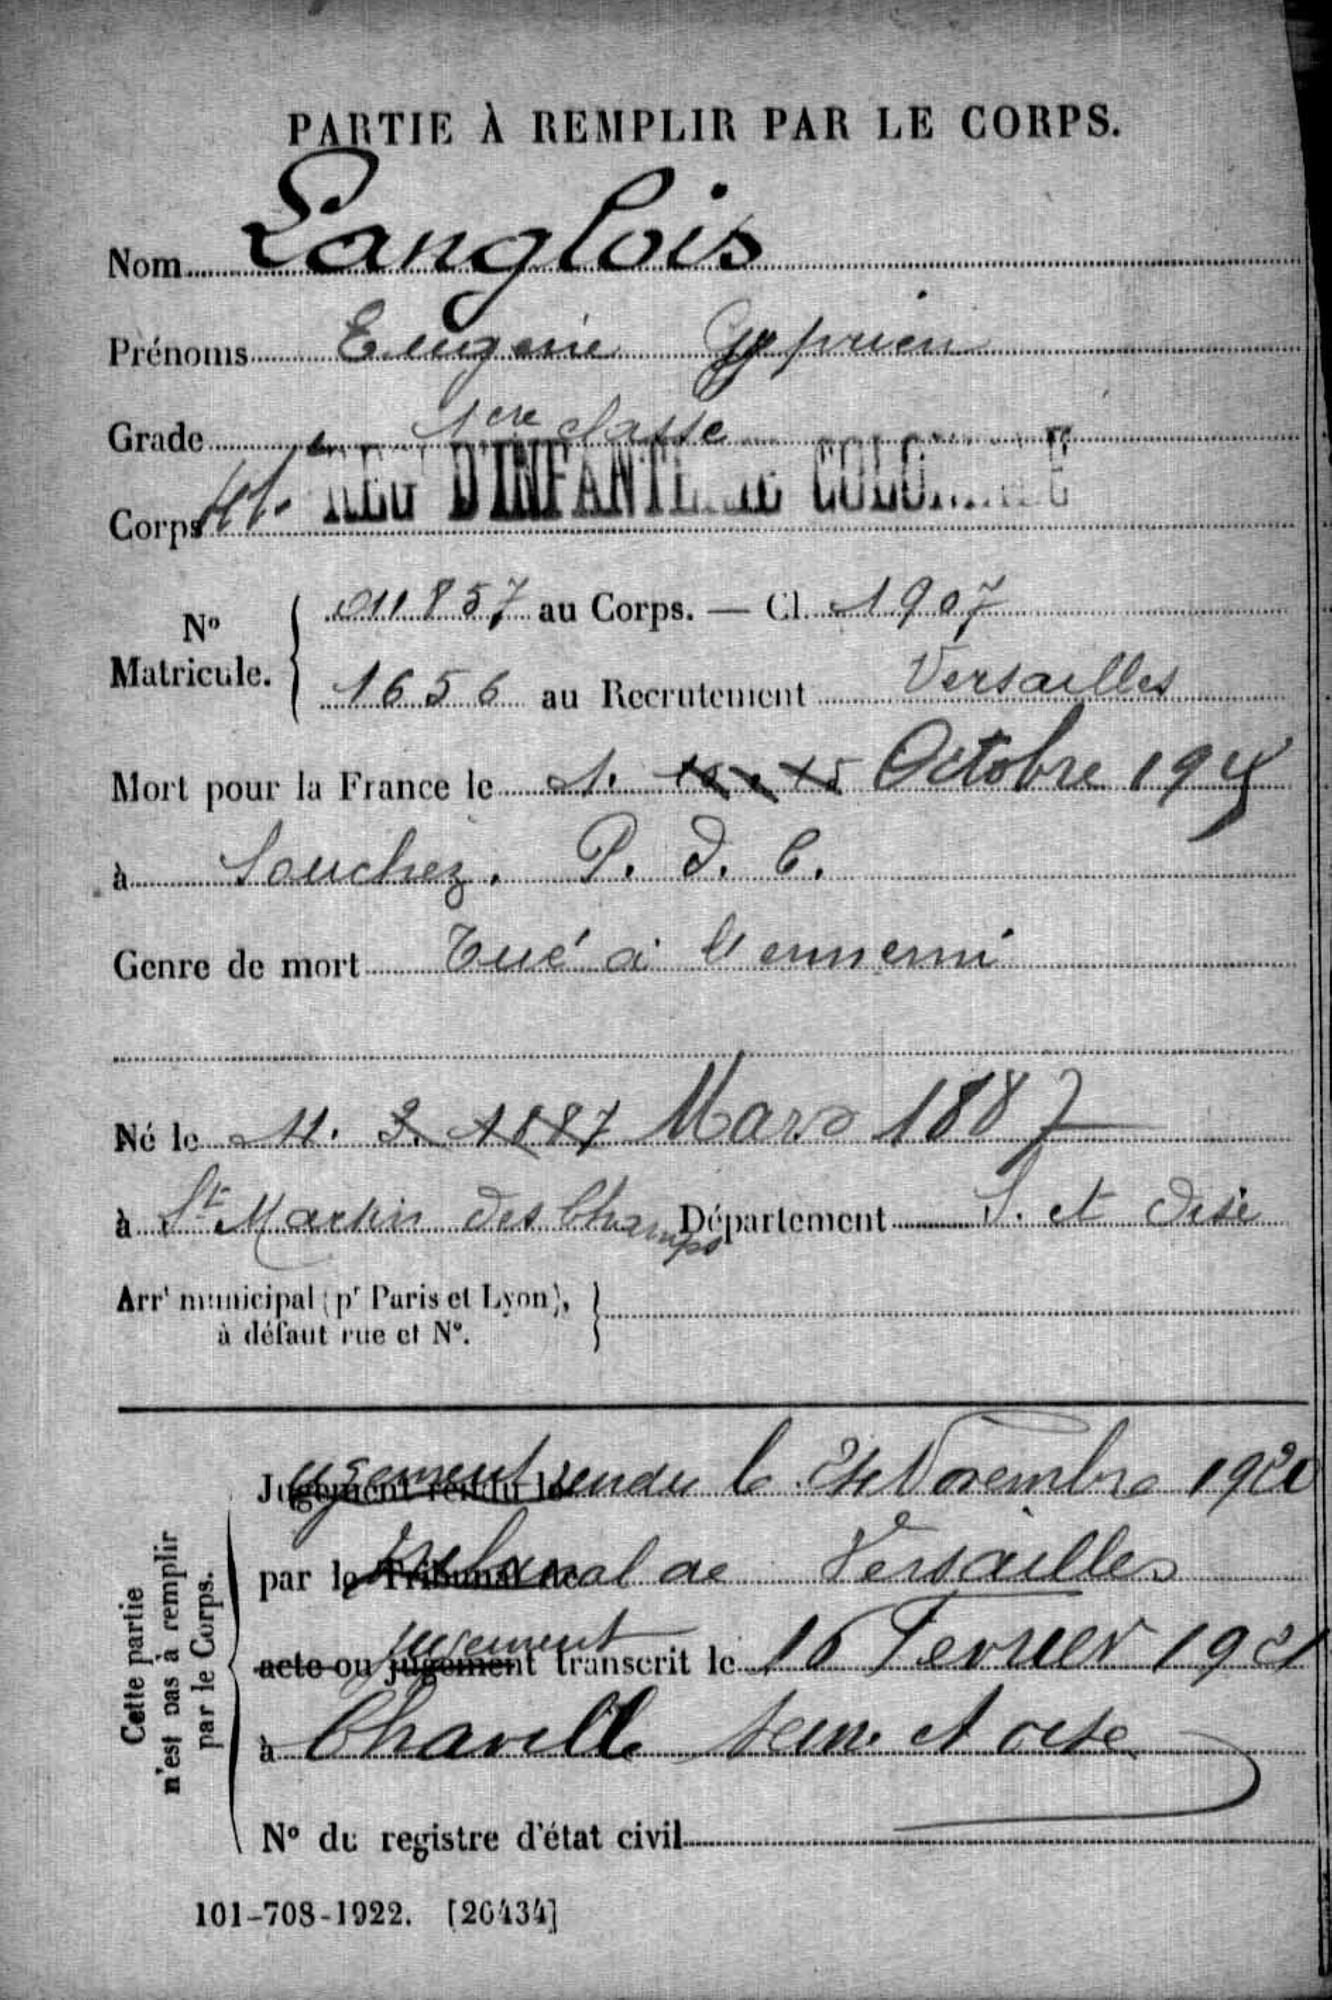 PARTIE À REMPLIR PAR LE CORPS.
Nom Langlois
Prénoms Eugène Cyprien
Grade 1ere classe
Corps 41. REG D'INFANTERIE COLONIALE
No Matricule. 011857 au Corps. — Cl. 1907
1656 au Recrutement Versailles
Mort pour la France le 1. 10. 15 Octobre 1915
à Souchez. P. d. C.
Genre de mort Tué à l'ennemi
Né le 11. 3. 1887 Mars 1887
à St Martin des Champs Département S. et Oise
Arrt municipal (pr Paris et Lyon),
à défaut rue et No.
Jugement rendu le 24 Novembre 1920
par le Tribunal de Versailles
acte ou jugement transcrit le 16 Fevrier 1921
à Chaville Seine et oise
No du registre d'état civil
Cette partie
n'est pas à remplir
par le Corps.
101-708-1922. [26434]